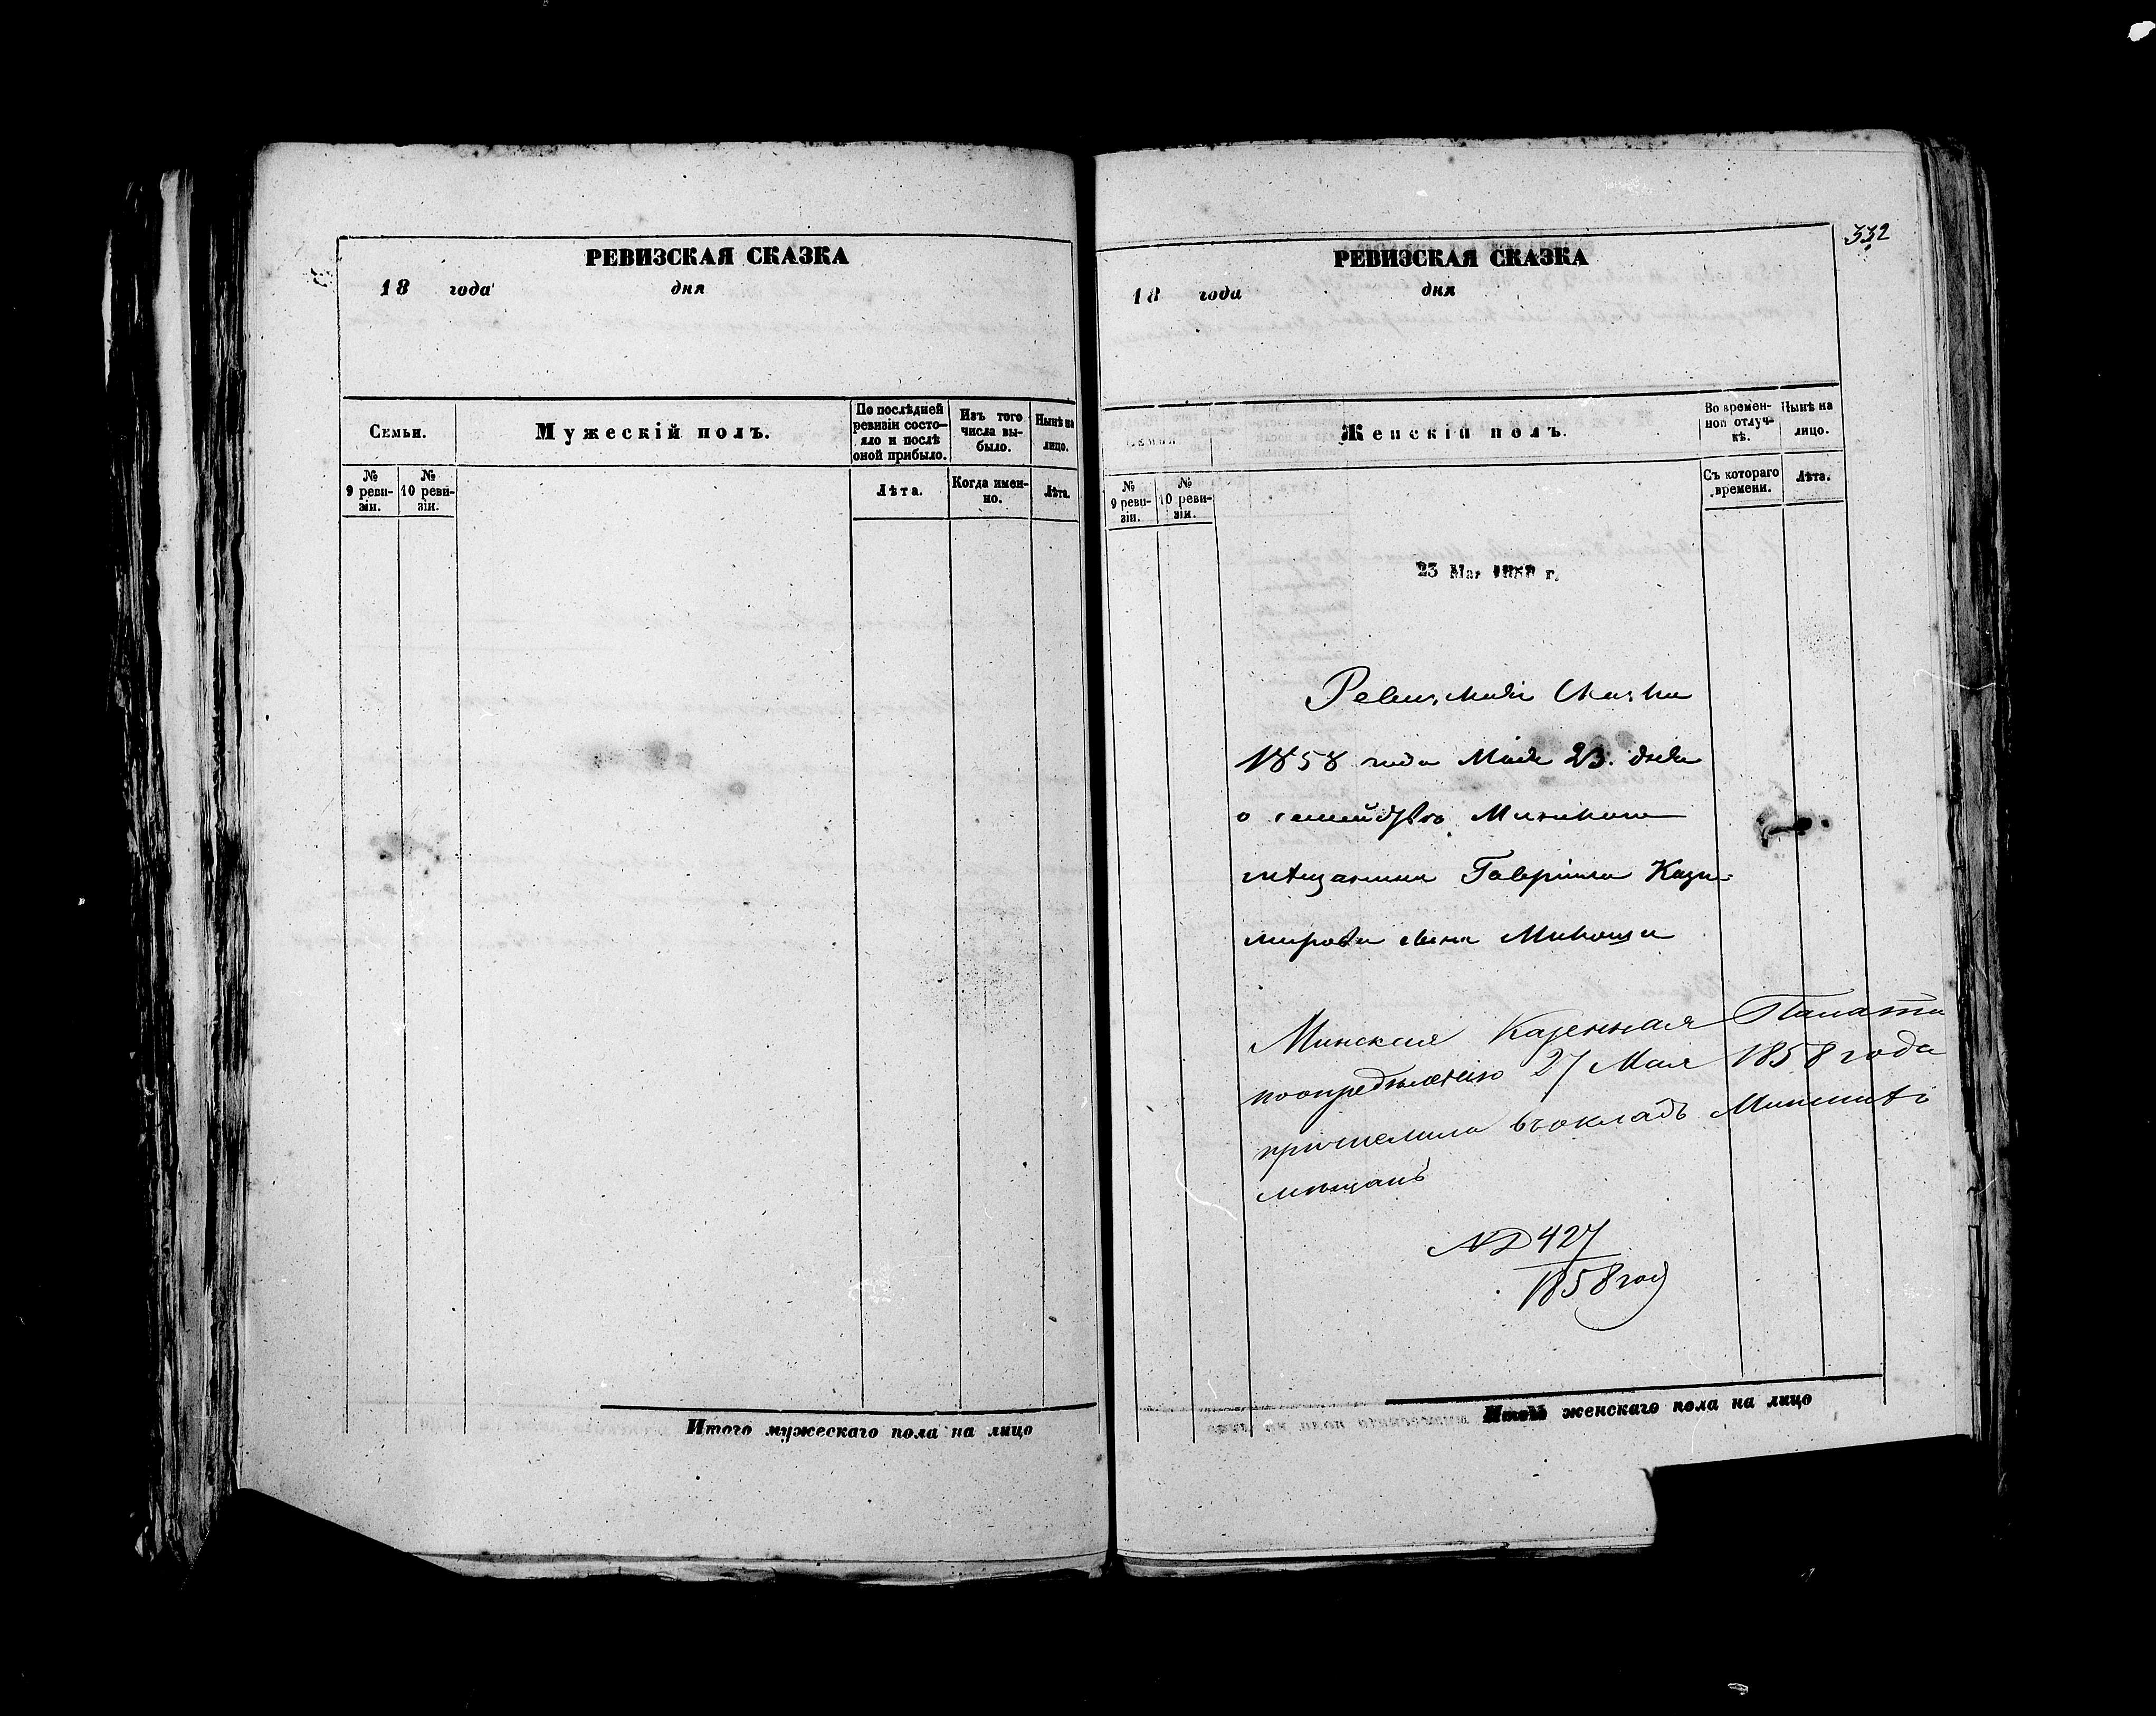 РЕВИЗСКАЯ СКАЗКА
18 года дня
Семьи.
Мужескій полъ.
По послѣдней
ревизіи состо-
яло и послѣ
оной прибыло.
Изъ того
числа вы-
было.
Нынѣ на
лицо.
№
9 реви-
зіи.
№
10 реви-
зіи.
Лѣта.
Когда имен-
но.
Лѣта.
Итого мужескаго пола на лицо
332
РЕВИЗСКАЯ СКАЗКА
18 года дня
Семьи
Женскій полъ.
Во времен-
ной отлуч-
кѣ.
Нынѣ на
лицо.
№
9 реви-
зіи.
№
10 реви-
зіи.
Съ котораго
времени.
Лѣта.
23 Мая г.
Ревизская Сказка
1858 года Маія 23. дня
о семействѣ Минскаго
мѣщанина Гавріила Кази-
мирова сына
Минская Казенная Палата
поопредѣленію 27 Мая 1858 года
причислила въокладъ Минскихъ
мѣщанъ
№ 427
1858 год
Итого женскаго пола на лицо